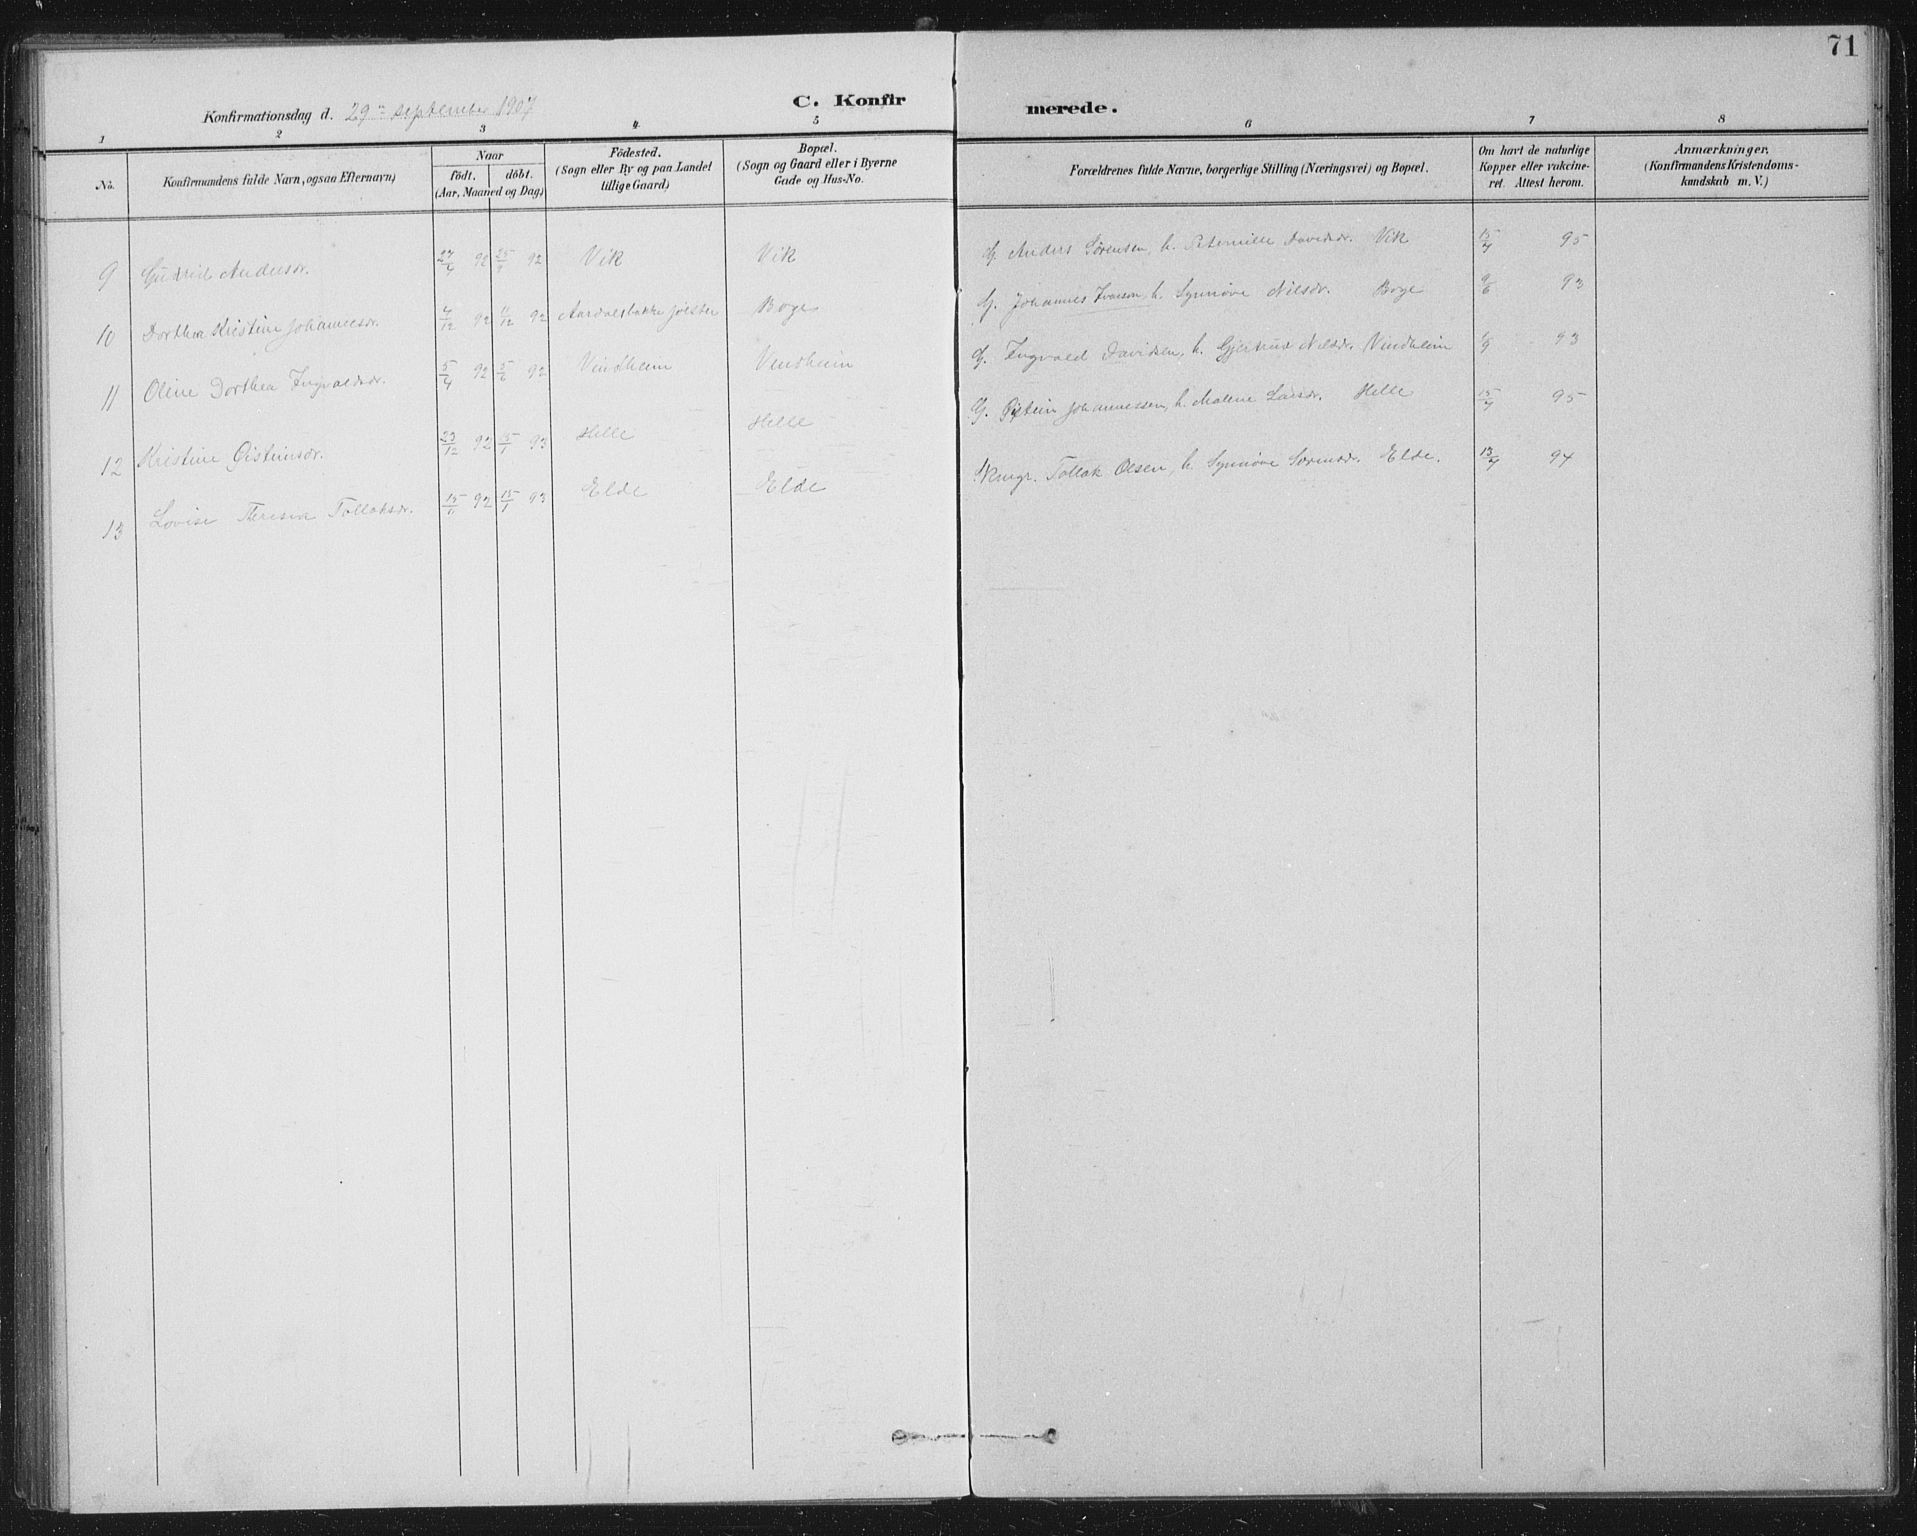 71
Konfirmationsdag d. 29de september 1907
C. Konfirmerede.
1 2 3 4 5 6 7 8
No.
Konfirmandens fulde Navn, ogsaa Efternavn)
Naar
födt. döbt.
(Aar, Maaned og Dag)
Födested.
(Sogn eller By og paa Landet
tillige Gaard)
Bopæl.
(Sogn og Gaard eller i Byerne
Gade og Hus-No.
Forældrenes fulde Navne, borgerlige Stilling (Næringsvei) og Bopæl.
Om havt de naturlige
Kopper eller vakcine-
ret. Attest herom.
Anmærkninger.
(Konfirmandens Kristendoms-
kundskab m. V.)
9 Gudrid Andersdr. 27/4 92 25/ 92 Vik Vik G. Anders Sörensen, h. Peternille Davidsdr. Vik 15/4 95
10 Dorthea Kristine Johannesdr. 4/12 92 11/12 92 Aardalsbakke Jølster Böge G. Johannes Ivarson, h. Synnöve Nilsdr. Böge 9/6 93
11 Oline Dorthea Ingvaldsdr. 5/4 92 5/6 92 Vindheim Vindheim G. Ingvald Davidsen, h. Gjertrud Nilsdr. Vindheim 6/9 93
12 Kristine Øisteinsdr. 23/12 92 5/1 93 Helle Helle G. Øistein Johannessen, h. Malene Larsdr. Helle 15/4 95
13 Lovise Theresia Tollaksdr. 15/11 92 15/1 93 Elde Elde Tollak Olsen, h. Synnöve Elde. 13/4 94